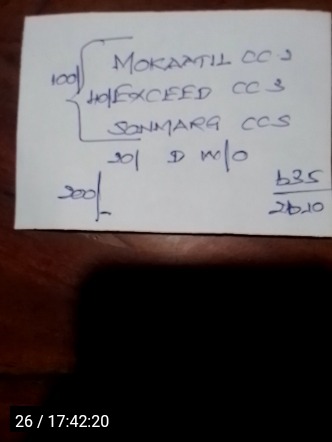 MOKAATIL CC 2
100/ 40/ EXCEED CC 3
SONMARG CC5
20/ D W/O
200/- 635
2610
26 / 17:42:20